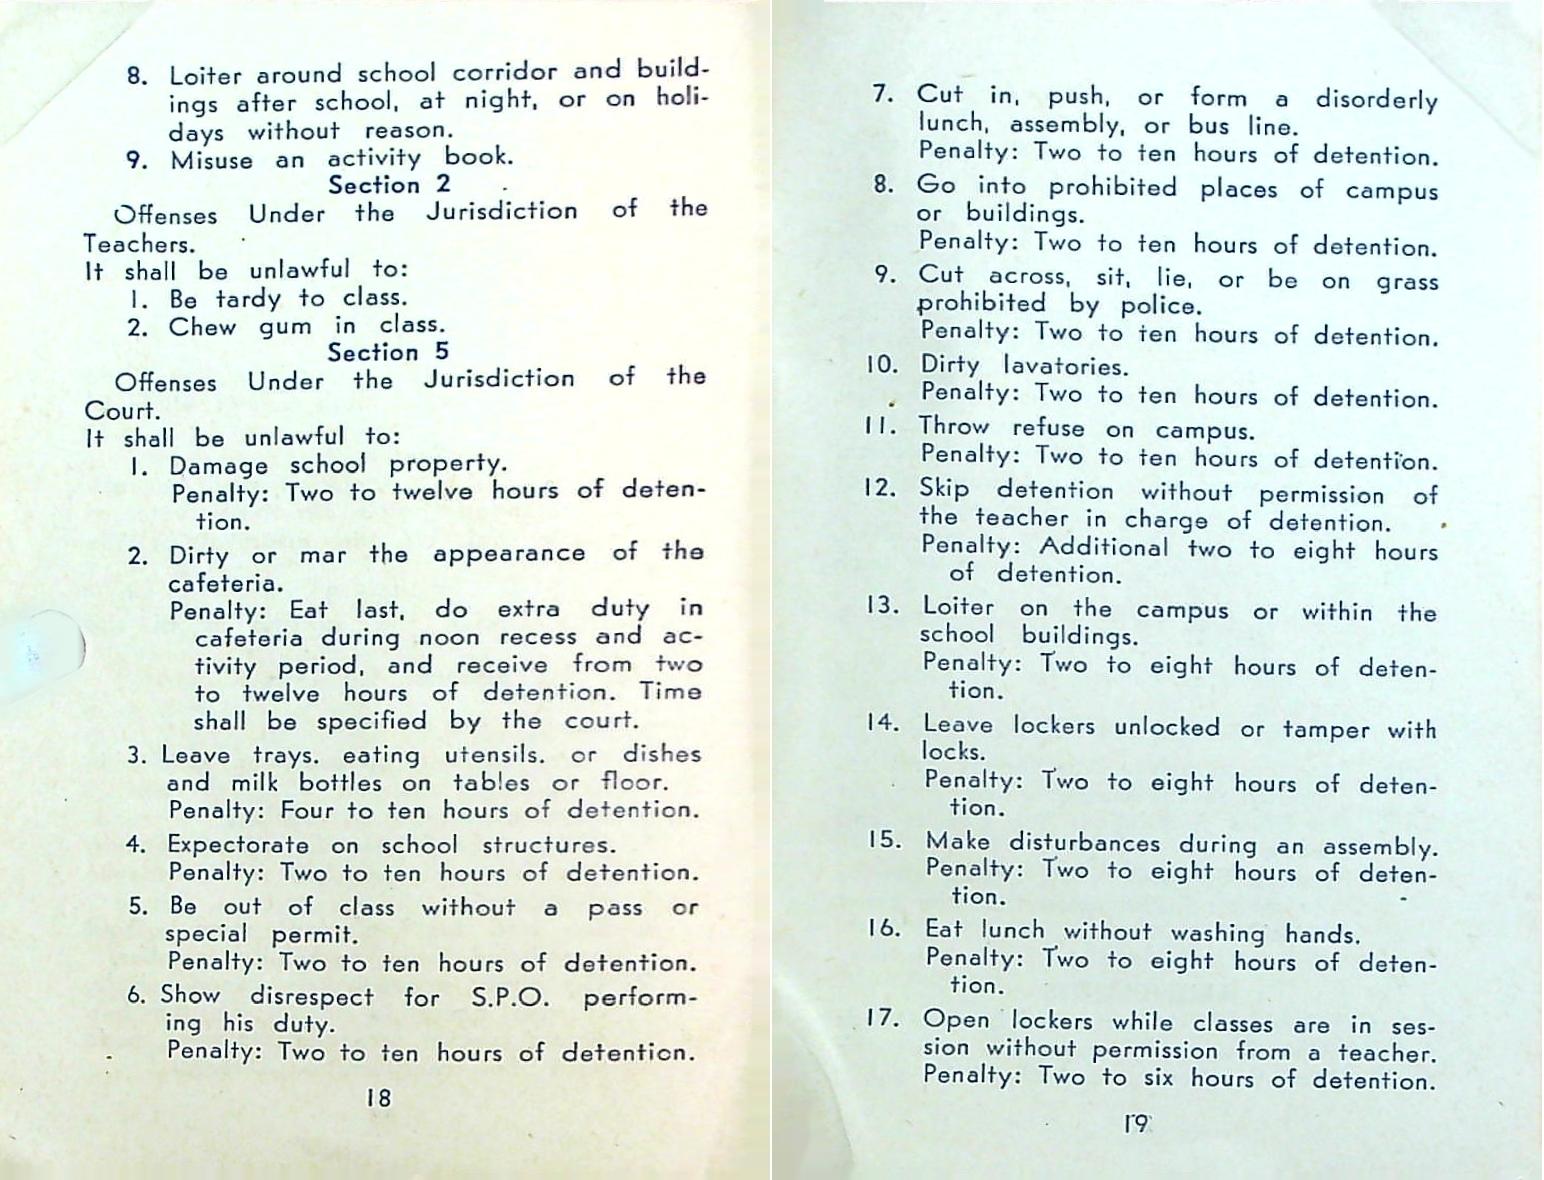 8. Loiter around school corridor and build-
ings after school, at night, or on holi-
days without reason.
9. Misuse an activity book.
Section 2
Offenses Under the Jurisdiction of the
Teachers.
It shall be unlawful to:
1. Be tardy to class.
2. Chew gum in class.
Section 5
Offenses Under the Jurisdiction of the
Court.
It shall be unlawful to:
1. Damage school property.
Penalty: Two to twelve hours of deten-
tion.
2. Dirty or mar the appearance of the
cafeteria.
Penalty: Eat last, do extra duty in
cafeteria during noon recess and ac-
tivity period, and receive from two
to twelve hours of detention. Time
shall be specified by the court.
3. Leave trays. eating utensils. or dishes
and milk bottles on tables or floor.
Penalty: Four to ten hours of detention.
4. Expectorate on school structures.
Penalty: Two to ten hours of detention.
5. Be out of class without a pass or
special permit.
Penalty: Two to ten hours of detention.
6. Show disrespect for S.P.O. perform-
ing his duty.
Penalty: Two to ten hours of detention.
18
7. Cut in, push, or form a disorderly
lunch, assembly, or bus line.
Penalty: Two to ten hours of detention.
8. Go into prohibited places of campus
or buildings.
Penalty: Two to ten hours of detention.
9. Cut across, sit, lie, or be on grass
prohibited by police.
Penalty: Two to ten hours of detention.
10. Dirty lavatories.
Penalty: Two to ten hours of detention.
11. Throw refuse on campus.
Penalty: Two to ten hours of detention.
12. Skip detention without permission of
the teacher in charge of detention.
Penalty: Additional two to eight hours
of detention.
13. Loiter on the campus or within the
school buildings.
Penalty: Two to eight hours of deten-
tion.
14. Leave lockers unlocked or tamper with
locks.
Penalty: Two to eight hours of deten-
tion.
15. Make disturbances during an assembly.
Penalty: Two to eight hours of deten-
tion.
16. Eat lunch without washing hands.
Penalty: Two to eight hours of deten-
tion.
17. Open lockers while classes are in ses-
sion without permission from a teacher.
Penalty: Two to six hours of detention.
19